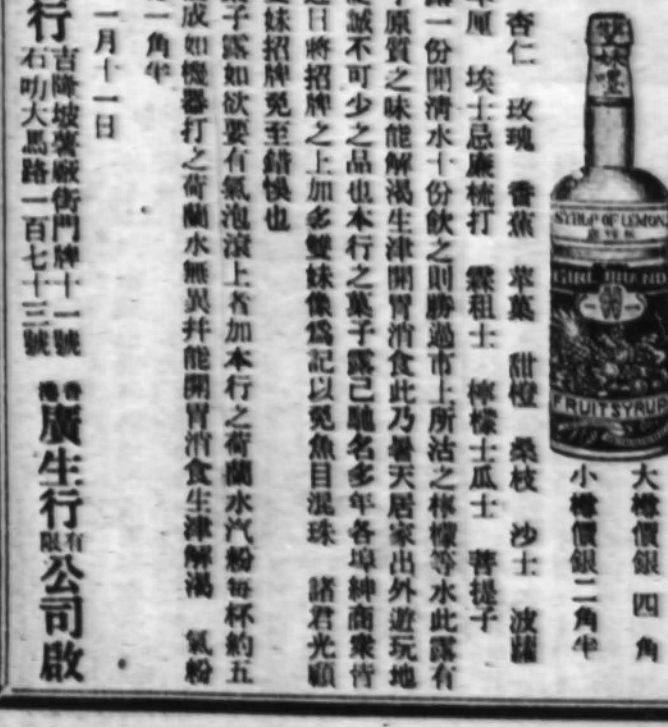 雙妹嘜
SYRUP OF LEMON
GIRL BRAND
FRUIT SYRUP
大樽價銀四角
小樽價銀二角半
杏仁 玫瑰 香蕉 苹菓 甜橙 桑枝 沙士 波蘿
厘 埃士忌廉梳打 霖租士 檸檬士瓜士 菩提子
一份開清水十份飲之則勝過市上所沽之檸檬等水此露有
原質之味能解渴生津開胃消食此乃暑天居家出外遊玩地
誠不可少之品也本行之菓子露己馳名多年各埠紳商衆皆
日將招牌之上加多雙妹像爲記以免魚目混珠 諸君光顧
妹招牌免至錯悞也
子露如欲要有氣泡滾上者加本行之荷蘭水汽粉每杯約五
成如機器打之荷蘭水無異并能開胃消食生津解渴 氣粉
一角半
一月十一日
行
吉隆坡警廠街門牌十一號
石叻大馬路一百七十三號
香港廣生行有限公司啟